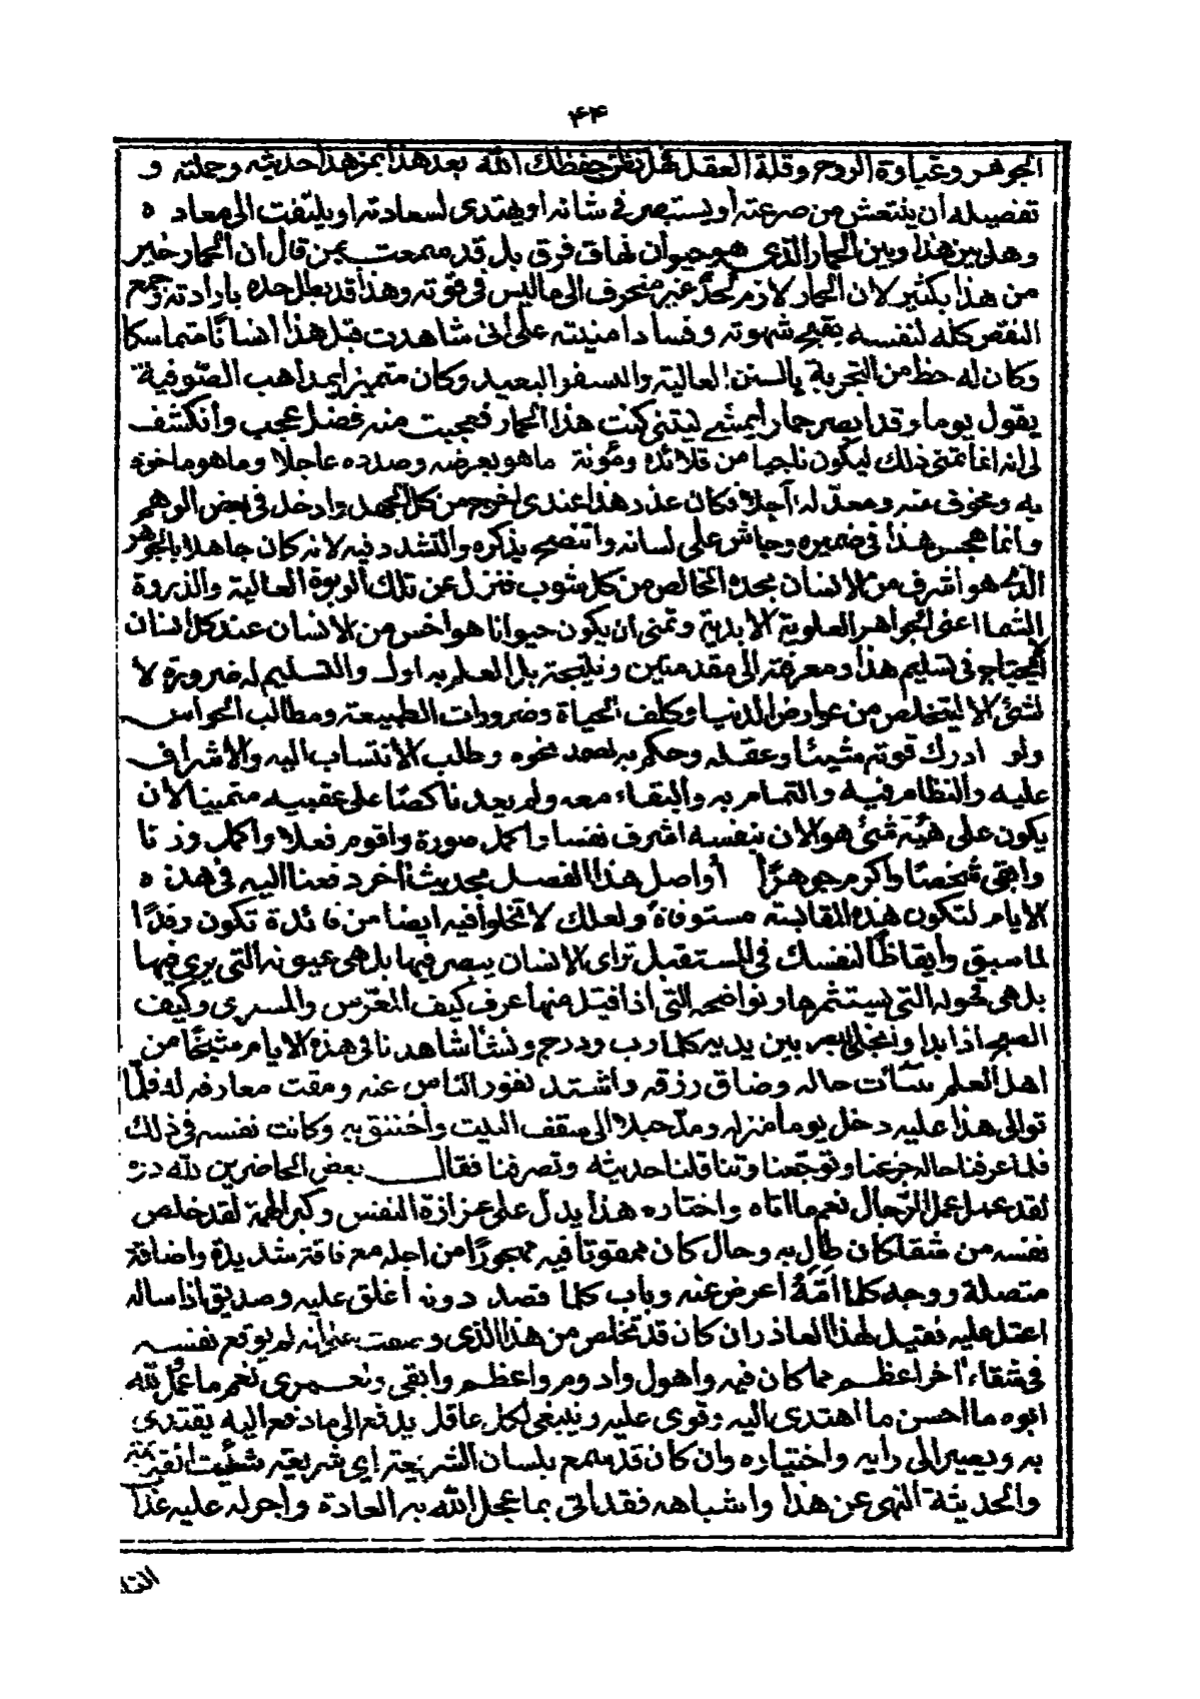 ۴۴
الجوهر وغباوة الروح وقلة العقل هل تظن حفظك الله بعد هذا بمن هذا حديثه وجملته و
تفصيله أن ينتعش من صرعته أو يستبصر في شانه او يهتدى لسعادته او يلتفت الى معاد ه
وهل بين هذا وبين الحمار الذي هو حيوان نهاق فرق بل قد سمعت بمن قال ان الحمار خير
من هذا بكثير لان الحمار لازم لحدّ غير منحرف الى ماليس في قوته وهذا قد بطل حده بارادته وجمع
النقص كله لنفسه بقبح شهوته وفساد امنيته على أنى شاهدت قبل هذا انسانًا متماسكا
وكان له حظ من التجربة بالسنن العالية والسفر البعيد وكان متميزا بمذاهب الصّوفية
يقول يوما وقد ابصر حمارا يمشى ليتنى كنت هذا الحمار فعجبت منه فضل عجب وانكشف
لى انه انما تمنى ذلك ليكون ناجيا من قلائده ومؤنة ما هو بعرضه وصدده عاجلا وماهو ماخوذ
به ومخوف منه ومعدّ له آجلا فكان عذر هذا عندى اخرج من كل الجهد وادخل في بعض الوهم
وانما هجس هذا في ضميره وجاش على لسانه وانتصح بذكره والتشدد فيه لانه كان جاهلا بالجوهر
الذى هو اشرف من الانسان بحده الخالص من كل شوب فنزل عن تلك الربوة العالية والذروة
الشما اعنى الجواهر العلوية الابدية وتمنى ان يكون حيوانا هو أخس من الانسان عند كل انسان
لايحتاج في تسليم هذا ومعرفته الى مقدمتين ونتيجة بل العلم به اول والتسليم له ضرورة لا
لشئ الا ليتخلص من عوارض الدنيا وكلف الحياة وضرورات الطبيعة ومطالب الحواس
ولو ادرك قوته شيئا وعقله وحكم به لصمد نحوه وطلب الانتساب اليه والاشراف
عليه والنظام فيه والتمام به والبقاء معه ولم يعد ناكصًا على عقبيه متمنيا لان
يكون على هيئة شئ هو الان بنفسه اشرف نفسا واكمل صورة واقوم فعلا واكمل وزنا
وابقى شخصًا واكرم جوهرًا أواصل هذا الفصل بحديث آخر دفعنا اليه في هذ ه
الايام لتكون هذه المقابسة مستوفاة ولعلك لا تخلو فيه ايضا من فائدة تكون رفدًا
لما سبق وايقاظًا لنفسك في المستقبل تراى الانسان يبصر فيها بل هى عيونه التي يرى فيها
بل هى نحوله التي يستثمرها ونواضحه التى اذا فتل منها عرف كيف المعرّس والمسرى وكيف
الصبح اذا بدا وانجلى البصر بين يديه كلما رب ودرج ونشأ شاهدنا في هذه الايام شيخًا من
اهل العلم ساءت حاله وضاق رزقه واشتد نفور الناس عنه ومقت معارفه له فلمّا
توالى هذا عليه دخل يوما منزله ومدّ حبلا الى سقف البيت واختنق به وكانت نفسه في ذلك
فلما عرفنا حاله جزعنا وتوجّعنا وتناقلنا حديثه وتصرفنا فقال بعض الحاضرين لله دره
لقد عمل عمل الرّجال نعم ما اتاه واختاره هذا يدل على عزازة النفس وكبر الهمة لقد خلص
نفسه من شقا كان طال به وحال كان ممقوتا فيه مهجورًا من اجله مع فاقة شديدة واضاقة
متصلة ووجه كلما امّهُ اعرض عنه وباب كلما قصد دونه اغلق عليه وصديق اذا ساله
اعتل عليه فقيل لهذا العاذر ان كان قد تخلص من هذا الذى وصفت على انه لم يوقع نفسه
في شقاء آخر اعظم مما كان فيه واهول وادوم واعظم وابقى ولعمرى نعم ما عمل لله
ابوه ما احسن ما اهتدى اليه وقوى عليه وينبغى لكل عاقل يدفع الى ما دفع اليه يقتدى
به ويصير الى رايه واختياره وان كان قد سمع بلسان الشريعة اى شريعة شئت القديمة
والحديثة النهى عن هذا واشباهه فقد اتى بما عجل الله به العادة واجرله عليه غدا
النا